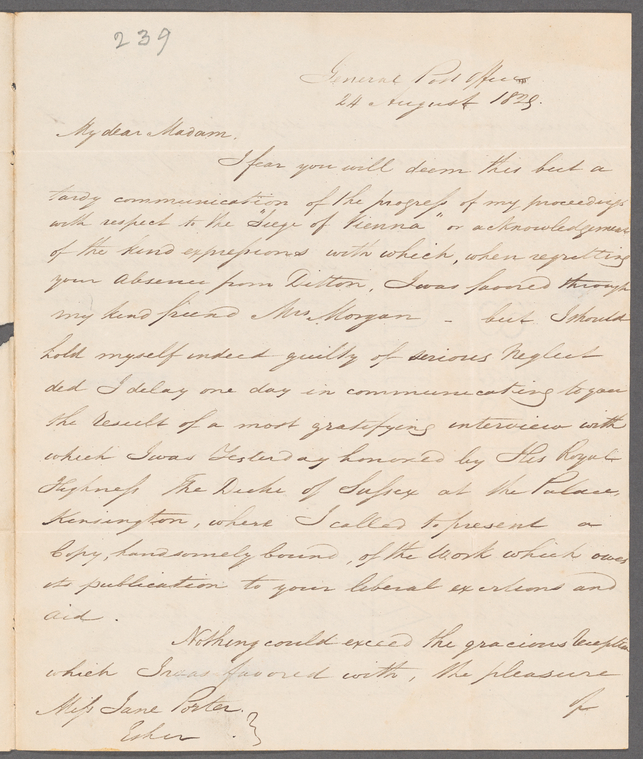 239
General Post Office
24 August 1829.
My dear Madam.
I fear you will deem this but a
tardy communication of the progress of my proceedings
with respect to the "Siege of Vienna" or acknowledgement
of the kind expressions with which, when regretting
your absence from Ditton, I was favored through
my kind friend Mrs. Morgan - but I should
hold myself indeed guilty of serious Neglect
did I delay one day in communicating to you
the result of a most gratifying interview with
which I was Yesterday honored by His Royal
Highness The Duke of Sussex at the Palace,
Kensington, where I called to present a
Copy, handsomely bound, of the Work which owes
its publication to your liberal exertions and
aid.
Nothing could exceed the gracious reception
which I was favored with, the pleasure
of
Miss Jane Porter.
Esher